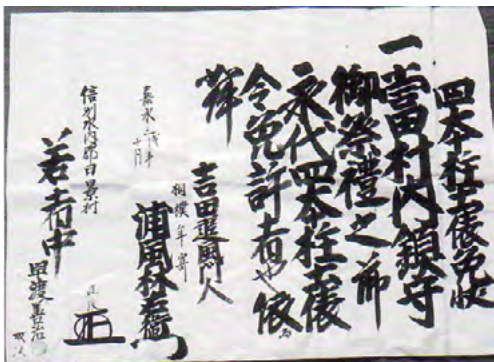 四本柱土俵免状
一當村内鎮守
御祭禮之節
永代四本柱土俵
令免許者也依而
如件
吉田追風門人
相撲年寄
浦風林右衛門
嘉永三戌年
十月
信州水内郡白景村
若者中